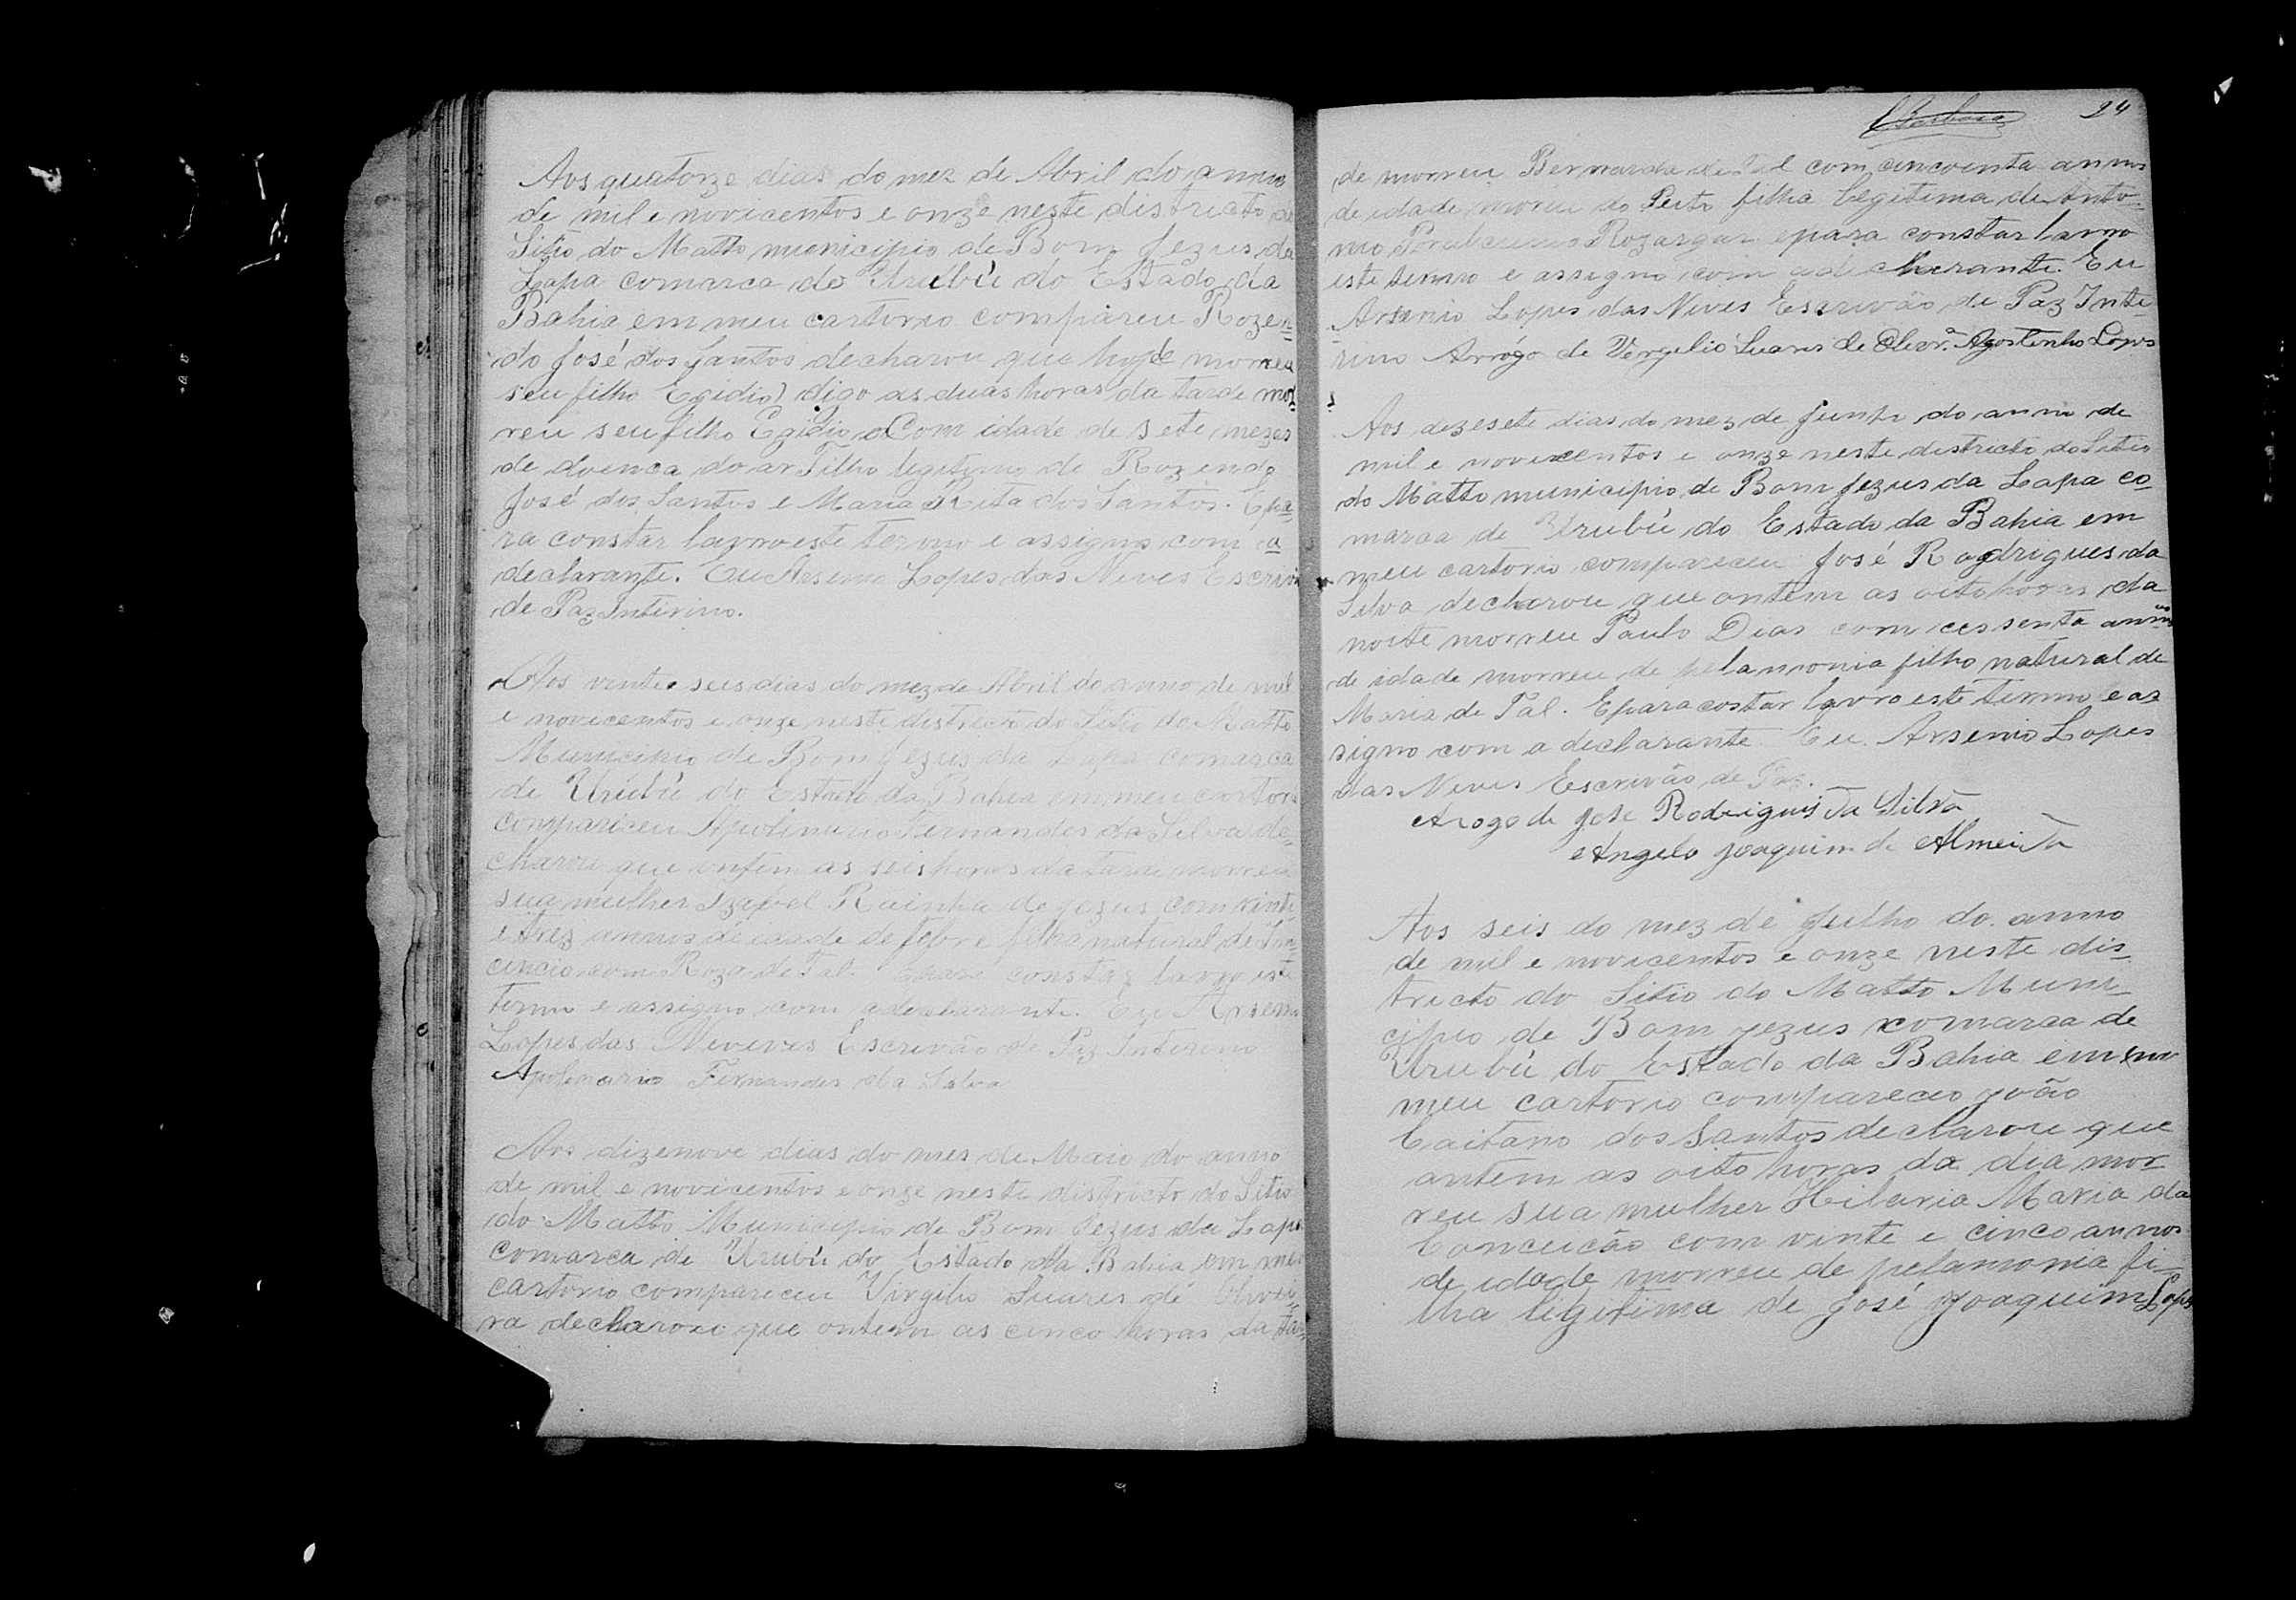 Aos quatorze dias do mez de Abril do anno
de mil e novicentos e onze neste districto do
Sitio do Matto municipio de Bom Jezus da
Lapa comarca do Urubú do Estado da
Bahia em meu cartorio compareu Rozen
do José dos Santos decharou que hoje morreu
seu filho Egidio) digo as duas horas da tarde mor
reu seu filho Egidio Com idade de sete mezes
de doenca do ar Filho legitimo de Rozendo
José dos Santos e Maria Rita dos Santos. Epa
ra constar lavro este termo e assigno com a
declarante. Eu Arsenio Lopes das Neves Escrivão
de Paz Interino.
Aos vinte e seis dias do mez de Abril do anno de mil
e novicentos e onze neste districto do Sitio do Matto
Municipio de Bom Jezus da Lapa comarca
de Urubú do Estado da Bahia em meu cartorio
compariceu Apolinario Fernandes da Silva de-
charou que ontem as seis horas da tarde morreu
sua mulher Izabel Rainha de Jezus com vinte
e trez annos de idade de febre filha natural de
com Roza de Tal. constar lavro este
termo e assigno com a declarante. Eu Arsenio
Lopes das Neveves Escrivão de Paz Interino
Apolinario Fernandes da Silva
Aos dizenove dias do mes de Maio do anno
de mil e novicentos e onze neste districto do Sitio
do Matto Municipio de Bom Jezus da Lapa
comarca de Urubú do Estado da Bahia em meu
cartorio compariceu Virgilio Suares de Olivei
ra decharou que ontem as cinco horas da tar
24
de morreu Bernarda de Tal com cincoenta annos
de idade moreu do Peito filha legitima de Anto-
nio e para constar lavro
este termo e assigno com a decharante. Eu
Arsenio Lopes das Neves Escrivão de Paz Inte
rino Arrógo de Vergelio Suares de Olivrª Agostinho Lopes
Aos dezesete dias do mez de Junho do anno de
mil e novicentos e onze neste districto do Sitio
do Matto municipio de Bom Jezus da Lapa co
marca de Urubú do Estado da Bahia em
meu cartorio compareceu José Rodrigues da
Silva decharou que ontem as oito horas da
noite morreu Paulo Dias com cessenta annos
de idade morreu de pelamonia filho natural de
Maria de Tal. Epara costar lavro este termo e as
signo com a declarante Eu Arsenio Lopes
das Neves Escrivão de Paz.
Arogo de José Rodrigues da Silva
Angelo Joaquim de Almeida
Aos seis do mez de Julho do anno
de mil e novicentos e onze neste dis
tricto do Sitio do Matto Muni-
cipio de Bom Jezus comarca de
Urubú do Estado da Bahia em
meu cartorio compareceo João
Caitano dos Santos decharou que
antem as oito horas da dia mor
reu sua mulher Hilaria Maria da
Conceicão com vinte e cinco annos
de idade morreu de pelamonia fi-
lha legitima de José Joaquim Lopes